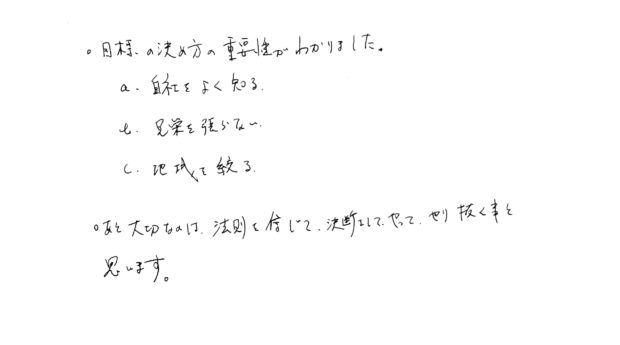 ○目標の決め方の重要性がわかりました。
a. 自社をよく知る.
b. 見栄を張らない.
c. 地域を絞る.
○あと大切なのは、法則を信じて、決断をして、やって、やり抜く事と
思います。